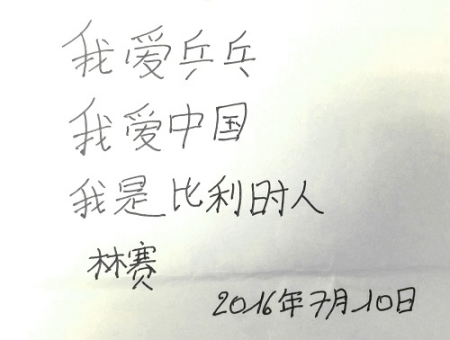 我爱乒乓
我爱中国
我是比利时人
林赛
2016年7月10日